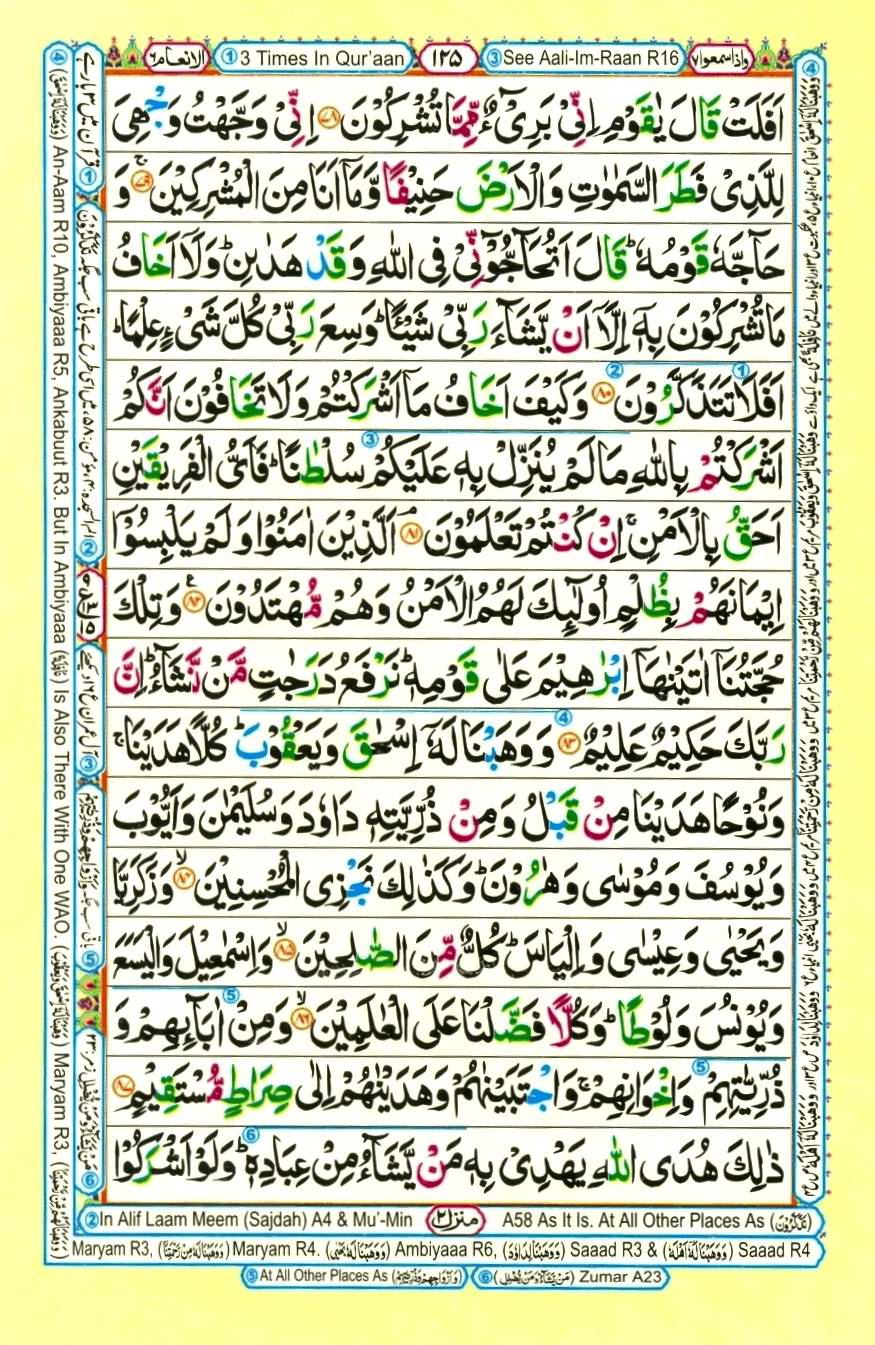 واذاسمعوا۷
③ See Aali-Im-Raan R16
۱۲۵
① 3 Times In Qur'aan
الانعام۶
اَفَلَتْ قَالَ يٰقَوْمِ اِنِّىْ بَرِىْٓءٌ مِّمَّا تُشْرِكُوْنَ ﴿۷۸﴾ اِنِّىْ وَجَّهْتُ وَجْهِىَ
لِلَّذِىْ فَطَرَ السَّمٰوٰتِ وَالْاَرْضَ حَنِيْفًا وَّمَاۤ اَنَا مِنَ الْمُشْرِكِيْنَ ۚ﴿۷۹﴾ وَ
حَآجَّهٗ قَوْمُهٗ ؕ قَالَ اَتُحَآجُّوْٓنِّىْ فِى اللّٰهِ وَقَدْ هَدٰىنِ ؕ وَلَاۤ اَخَافُ
مَا تُشْرِكُوْنَ بِهٖۤ اِلَّاۤ اَنْ يَّشَآءَ رَبِّىْ شَيْـًٔا ؕ وَسِعَ رَبِّىْ كُلَّ شَىْءٍ عِلْمًا ؕ
اَفَلَا تَتَذَكَّرُوْنَ ﴿۸۰﴾ وَكَيْفَ اَخَافُ مَاۤ اَشْرَكْتُمْ وَلَا تَخَافُوْنَ اَنَّكُمْ
اَشْرَكْتُمْ بِاللّٰهِ مَا لَمْ يُنَزِّلْ بِهٖ عَلَيْكُمْ سُلْطٰنًا ؕ فَاَىُّ الْفَرِيْقَيْنِ
اَحَقُّ بِالْاَمْنِ ۚ اِنْ كُنْتُمْ تَعْلَمُوْنَ ۘ﴿۸۱﴾ اَلَّذِيْنَ اٰمَنُوْا وَلَمْ يَلْبِسُوْۤا
اِيْمَانَهُمْ بِظُلْمٍ اُولٰٓئِكَ لَهُمُ الْاَمْنُ وَهُمْ مُّهْتَدُوْنَ ﴿۸۲﴾ وَتِلْكَ
حُجَّتُنَاۤ اٰتَيْنٰهَاۤ اِبْرٰهِيْمَ عَلٰى قَوْمِهٖ ؕ نَرْفَعُ دَرَجٰتٍ مَّنْ نَّشَآءُ ؕ اِنَّ
رَبَّكَ حَكِيْمٌ عَلِيْمٌ ﴿۸۳﴾ وَوَهَبْنَا لَهٗۤ اِسْحٰقَ وَيَعْقُوْبَ ؕ كُلًّا هَدَيْنَا ۚ
وَنُوْحًا هَدَيْنَا مِنْ قَبْلُ وَمِنْ ذُرِّيَّتِهٖ دَاوٗدَ وَسُلَيْمٰنَ وَاَيُّوْبَ
وَيُوْسُفَ وَمُوْسٰى وَهٰرُوْنَ ؕ وَكَذٰلِكَ نَجْزِى الْمُحْسِنِيْنَ ۙ﴿۸۴﴾ وَزَكَرِيَّا
وَيَحْيٰى وَعِيْسٰى وَاِلْيَاسَ ؕ كُلٌّ مِّنَ الصّٰلِحِيْنَ ۙ﴿۸۵﴾ وَاِسْمٰعِيْلَ وَالْيَسَعَ
وَيُوْنُسَ وَلُوْطًا ؕ وَكُلًّا فَضَّلْنَا عَلَى الْعٰلَمِيْنَ ۙ﴿۸۶﴾ وَمِنْ اٰبَآئِهِمْ وَ
ذُرِّيّٰتِهِمْ وَاِخْوَانِهِمْ ۚ وَاجْتَبَيْنٰهُمْ وَهَدَيْنٰهُمْ اِلٰى صِرَاطٍ مُّسْتَقِيْمٍ ﴿۸۷﴾
ذٰلِكَ هُدَى اللّٰهِ يَهْدِىْ بِهٖ مَنْ يَّشَآءُ مِنْ عِبَادِهٖ ؕ وَلَوْ اَشْرَكُوْا
② In Alif Laam Meem (Sajdah) A4 & Mu'-Min
منزل۲
A58 As It Is. At All Other Places As (تَذَكَّرُوْنَ)
④ (وَوَهَبْنَا لَهٗۤ اِسْحٰقَ) An-Aam R10, Ambiyaaa R5, Ankabuut R3. But In Ambiyaaa (نَافِلَةً) Is Also There With One WAO. (وَهَبْنَا لَهٗۤ اِسْحٰقَ وَيَعْقُوْبَ) Maryam R3, (وَوَهَبْنَا لَهُمْ مِّنْ رَّحْمَتِنَا)
Maryam R3, (وَوَهَبْنَا لَهٗ مِنْ رَّحْمَتِنَا) Maryam R4. (وَوَهَبْنَا لَهٗ يَحْيٰى) Ambiyaaa R6, (وَوَهَبْنَا لِدَاوٗدَ) Saaad R3 & (وَوَهَبْنَا لَهٗۤ اَهْلَهٗ) Saaad R4
⑤ At All Other Places As
⑥ Zumar A23